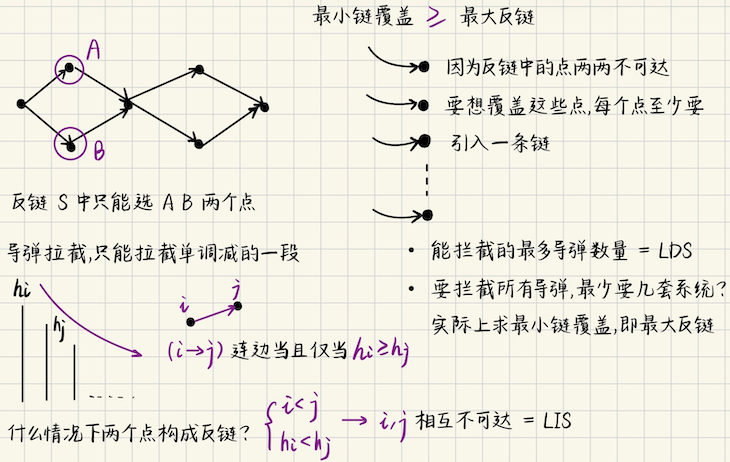 最小链覆盖 ≥ 最大反链
A
B
因为反链中的点两两不可达
要想覆盖这些点,每个点至少要
引入一条链
反链 S 中只能选 A B 两个点
导弹拉截,只能拉截单调减的一段
hi
hj
i
j
(i→j) 连边当且仅当 hi≥hj
• 能拦截的最多导弹数量 = LDS
• 要拦截所有导弹,最少要几套系统?
实际上求最小链覆盖,即最大反链
什么情况下两个点构成反链?
{ i<j
hi<hj
→ i,j 相互不可达 = LIS